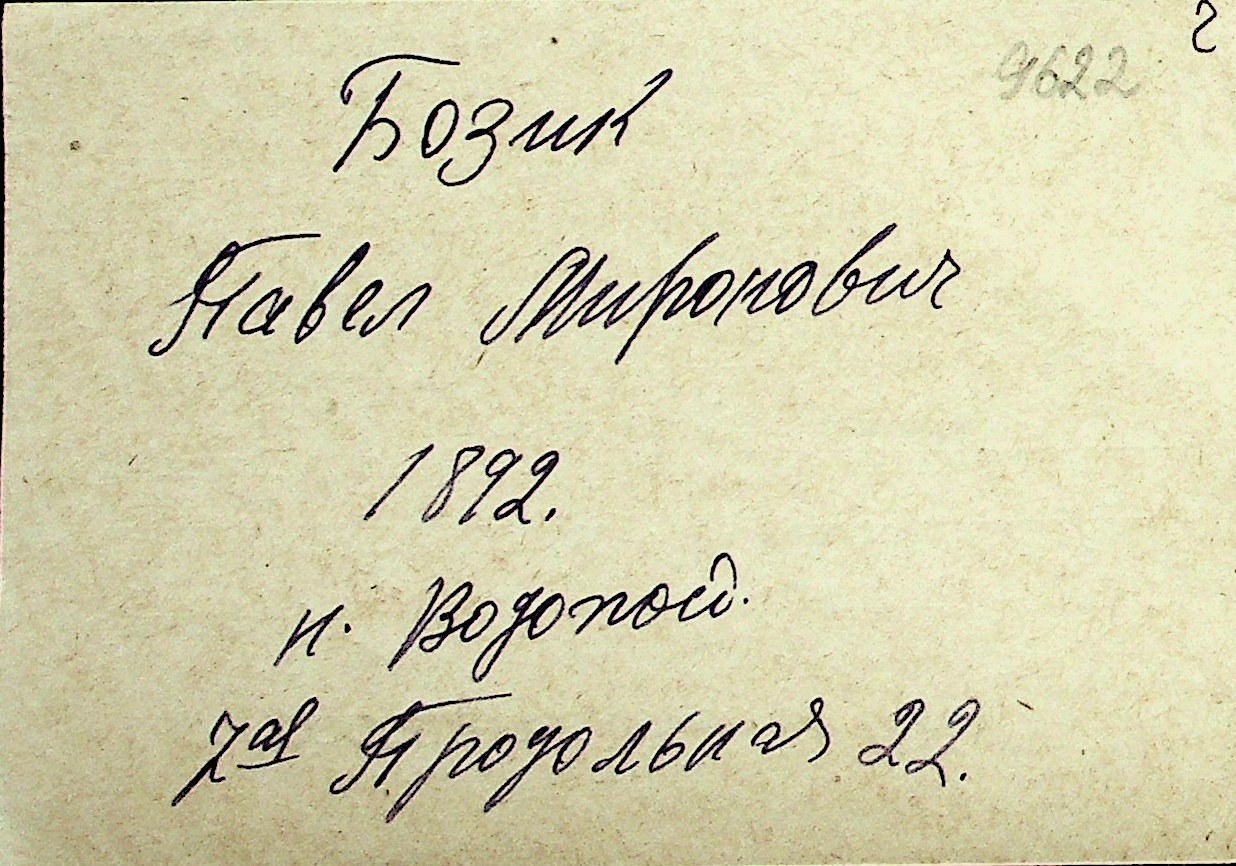 г
9622
Бозик
Павел Миронович
1892.
н. Водопой.
7ая Продольная 22.